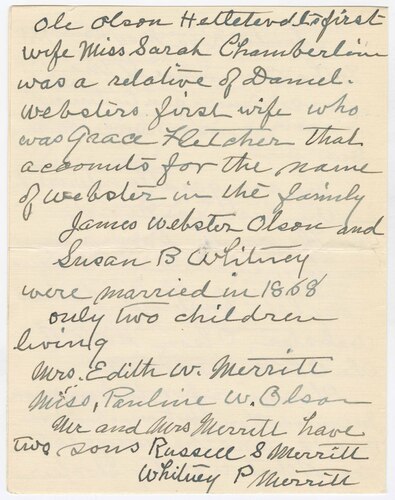 Ole Olson Hettletvedts first
wife Miss Sarah Chamberlin
was a relative of Daniel.
Websters first wife who
was Grace Fletcher that
accounts for the name
of Webster in the family
James Webster Olson and
Susan B Whitney
were married in 1868
only two children
living
Mrs. Edith W. Merritt
Miss, Pauline W. Olson
Mr and Mrs Merritt have
two sons Russell S Merritt
Whitney P Merritt